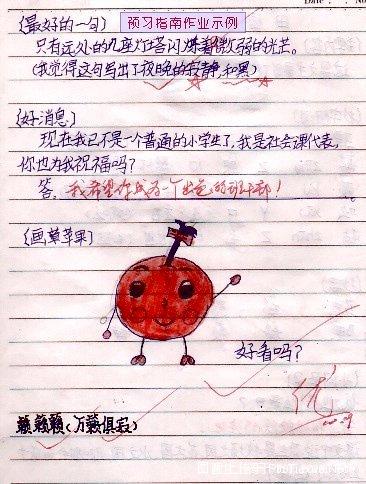 预习指南作业示例
(最好的一句)
只有远处的几座灯塔闪烁着微弱的光芒。
(我觉得这句写出了夜晚的寂静,和黑)
(好消息)
现在我已不是一个普通的小学生了,我是社会课代表,
你也为我祝福吗?
答:我希望你成为一个出色的班干部!
(画草苹果)
好看吗?
优
籁籁籁(万籁俱寂)